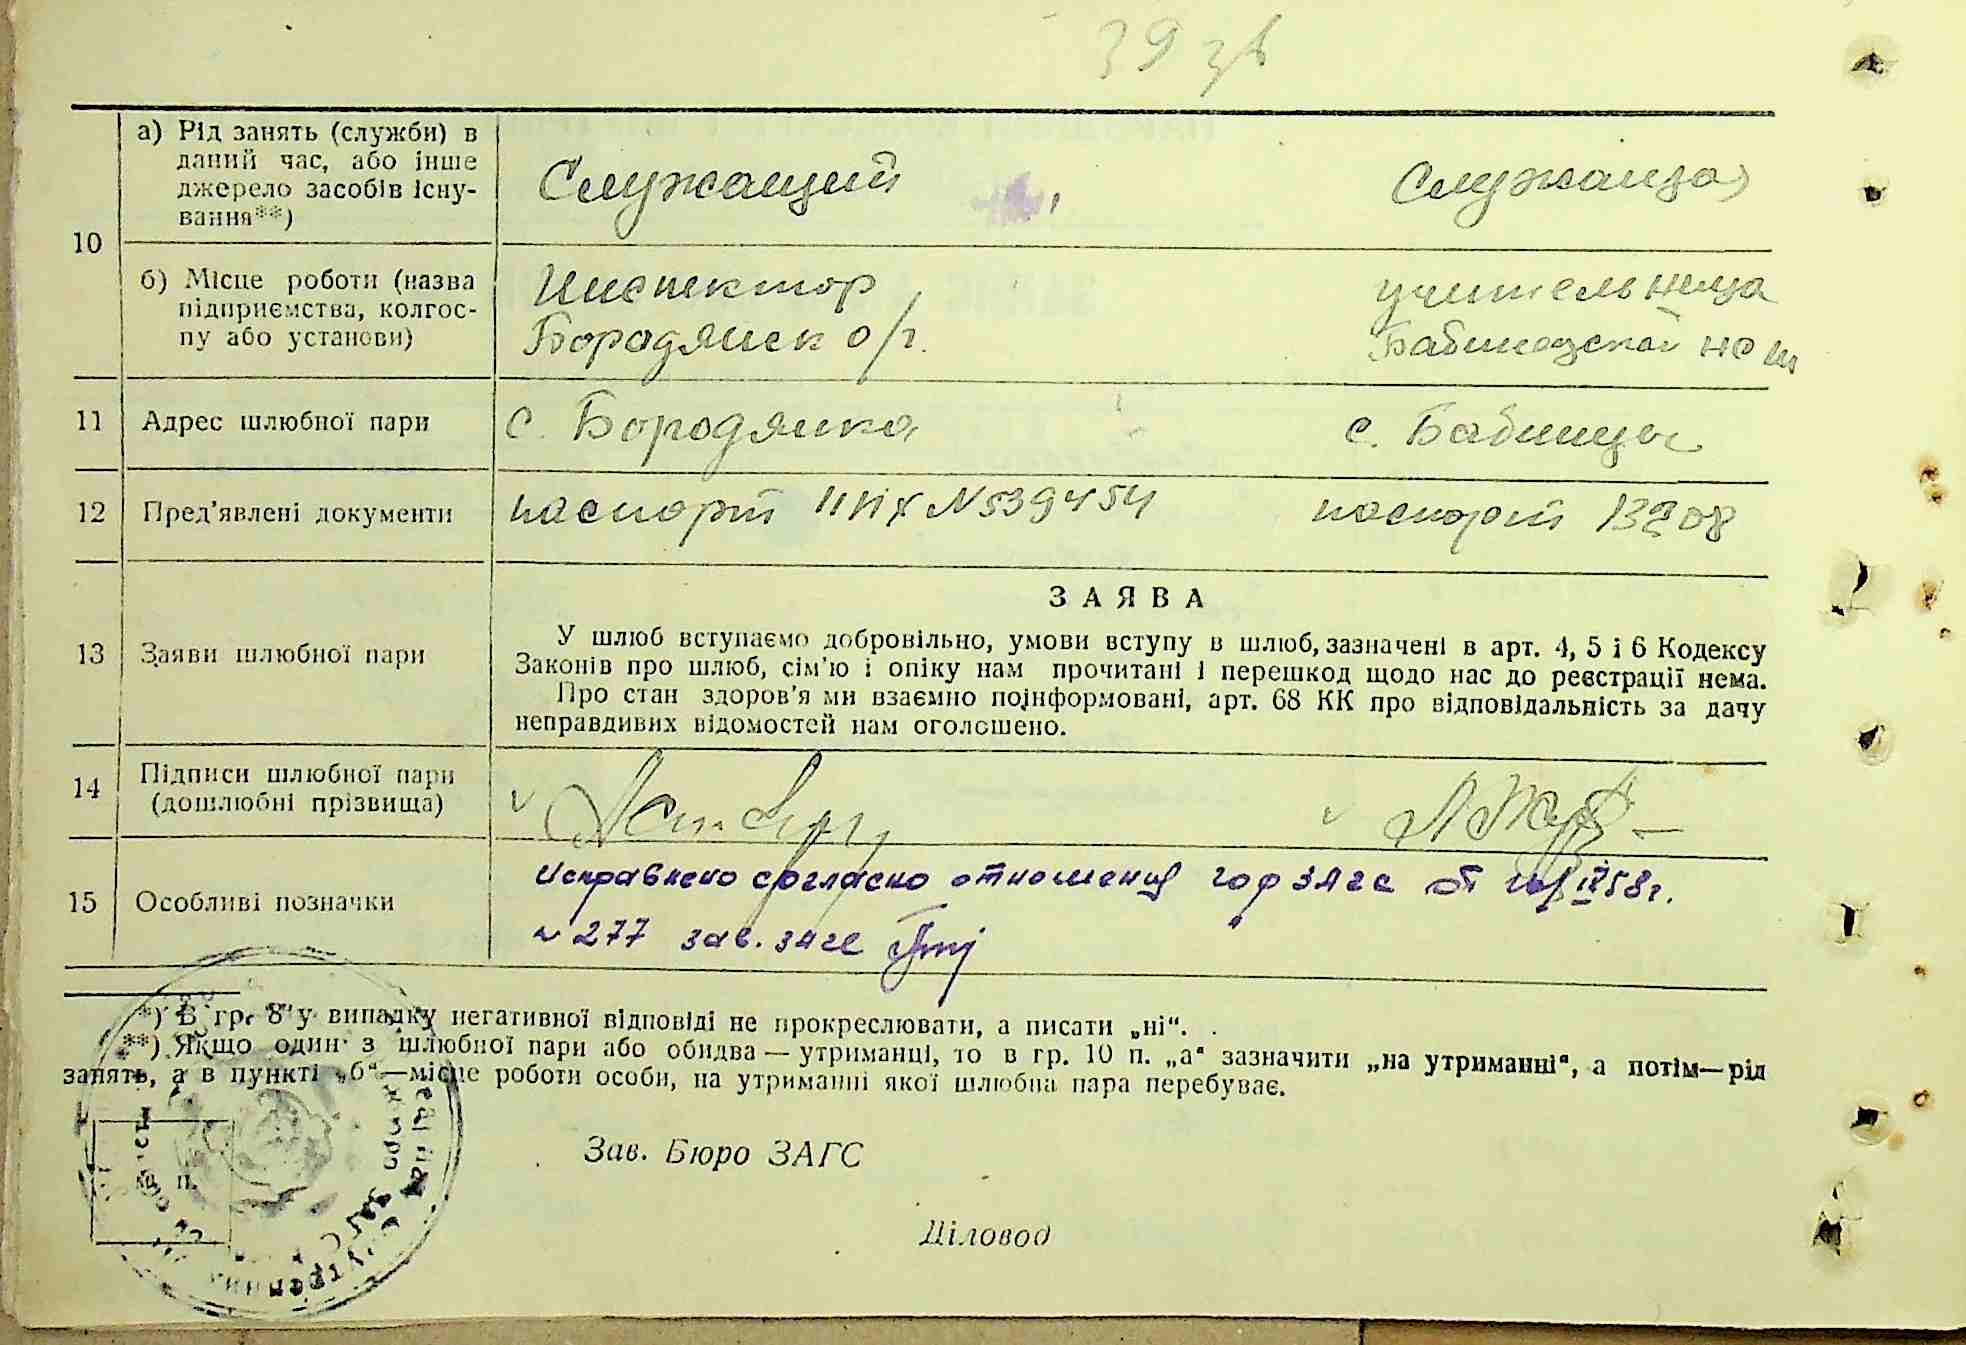 39 зв
10
а) Рід занять (служби) в
даний час, або інше
джерело засобів існу-
вання**)
Служащий
Служащая
б) Місце роботи (назва
підприємства, колгос-
пу або установи)
Инспектор
Бородянск о/г.
учительница
Бабинецской нсш
11
Адрес шлюбної пари
с. Бородянка
с. Бабинцы
12
Пред'явлені документи
паспорт N 539454
паспорт 13208
13
Заяви шлюбної пари
ЗАЯВА
У шлюб вступаємо добровільно, умови вступу в шлюб, зазначені в арт. 4, 5 і 6 Кодексу
Законів про шлюб, сім'ю і опіку нам прочитані і перешкод щодо нас до реєстрації нема.
Про стан здоров'я ми взаємно поінформовані, арт. 68 КК про відповідальність за дачу
неправдивих відомостей нам оголошено.
14
Підписи шлюбної пари
(дошлюбні прізвища)
15
Особливі позначки
Исправлено согласно отношения гор загс от IV 58 г.
N 277 зав. загс
*) В гр. 8 у випадку негативної відповіді не прокреслювати, а писати „ні“.
**) Якщо один з шлюбної пари або обидва — утриманці, то в гр. 10 п. „а“ зазначити „на утриманні“, а потім—рід
занять, а в пункті „б“—місце роботи особи, на утриманні якої шлюбна пара перебуває.
Зав. Бюро ЗАГС
М. П.
Діловод